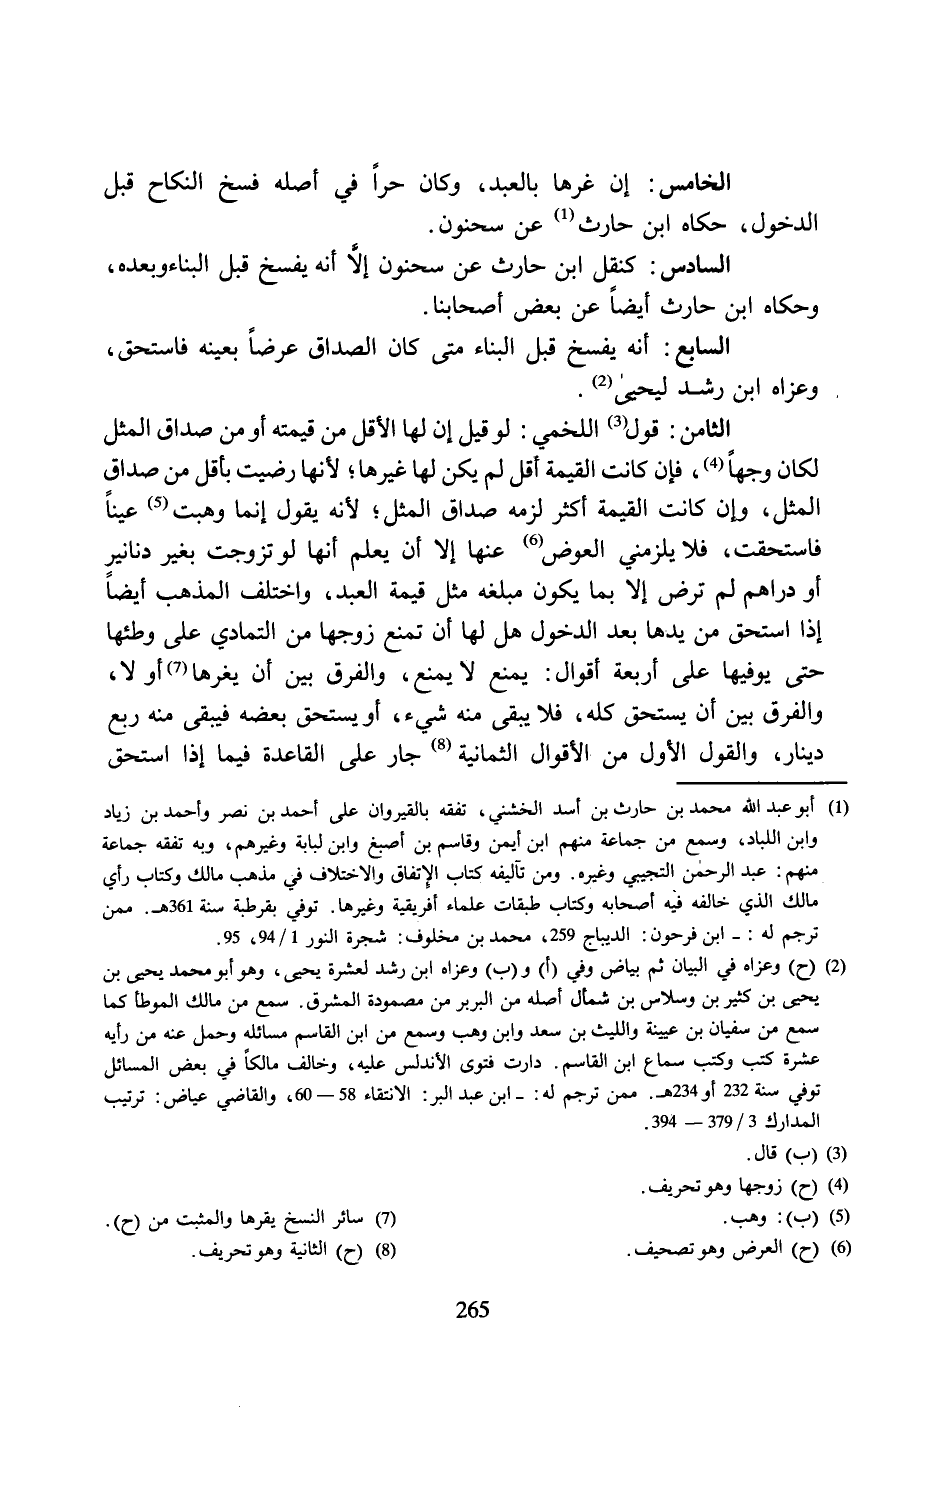 الخامس: إن غرها بالعبد، وكان حراً في أصله فسخ النكاح قبل
الدخول، حكاه ابن حارث(1) عن سحنون.
السادس: كنقل ابن حارث عن سحنون إلاَّ أنه يفسخ قبل البناءوبعده،
وحكاه ابن حارث أيضاً عن بعض أصحابنا.
السابع: أنه يفسخ قبل البناء متى كان الصداق عرضاً بعينه فاستحق،
وعزاه ابن رشد ليحيىٰ(2).
الثامن: قول(3) اللخمي: لو قيل إن لها الأقل من قيمته أو من صداق المثل
لكان وجهاً(4)، فإن كانت القيمة أقل لم يكن لها غيرها؛ لأنها رضيت بأقل من صداق
المثل، وإن كانت القيمة أكثر لزمه صداق المثل؛ لأنه يقول إنما وهبت(5) عيناً
فاستحقت، فلا يلزمني العوض(6) عنها إلا أن يعلم أنها لو تزوجت بغير دنانير
أو دراهم لم ترض إلا بما يكون مبلغه مثل قيمة العبد، واختلف المذهب أيضاً
إذا استحق من يدها بعد الدخول هل لها أن تمنع زوجها من التمادي على وطئها
حتى يوفيها على أربعة أقوال: يمنع لا يمنع، والفرق بين أن يغرها(7) أو لا،
والفرق بين أن يستحق كله، فلا يبقى منه شيء، أو يستحق بعضه فيبقى منه ربع
دينار، والقول الأول من الأقوال الثمانية(8) جار على القاعدة فيما إذا استحق
(1) أبو عبد الله محمد بن حارث بن أسد الخشني، تفقه بالقيروان على أحمد بن نصر وأحمد بن زياد
وابن اللباد، وسمع من جماعة منهم ابن أيمن وقاسم بن أصبغ وابن لبابة وغيرهم، وبه تفقه جماعة
منهم: عبد الرحمٰن التجيبي وغيره. ومن تآليفه كتاب الإتفاق والاختلاف في مذهب مالك وكتاب رأي
مالك الذي خالفه فيه أصحابه وكتاب طبقات علماء أفريقية وغيرها. توفي بقرطبة سنة 361هـ. ممن
ترجم له : ـ ابن فرحون: الديباج 259، محمد بن مخلوف: شجرة النور 1/ 94، 95.
(2) (ح) وعزاه في البيان ثم بياض وفي (أ) و(ب) وعزاه ابن رشد لعشرة يحيى، وهو أبو محمد يحيى بن
يحيى بن كثير بن وسلاس بن شمأل أصله من البربر من مصمودة المشرق. سمع من مالك الموطأ كما
سمع من سفيان بن عيينة والليث بن سعد وابن وهب وسمع من ابن القاسم مسائله وحمل عنه من رأيه
عشرة كتب وكتب سماع ابن القاسم. دارت فتوى الأندلس عليه، وخالف مالكاً في بعض المسائل
توفي سنة 232 أو 234هـ. ممن ترجم له: ـ ابن عبد البر: الانتقاء 58 — 60، والقاضي عياض: ترتيب
المدارك 3/ 379 — 394.
(3) (ب) قال.
(4) (ح) زوجها وهو تحريف.
(5) (ب): وهب.
(6) (ح) العرض وهو تصحيف.
(7) سائر النسخ يقرها والمثبت من (ح).
(8) (ح) الثانية وهو تحريف.
265